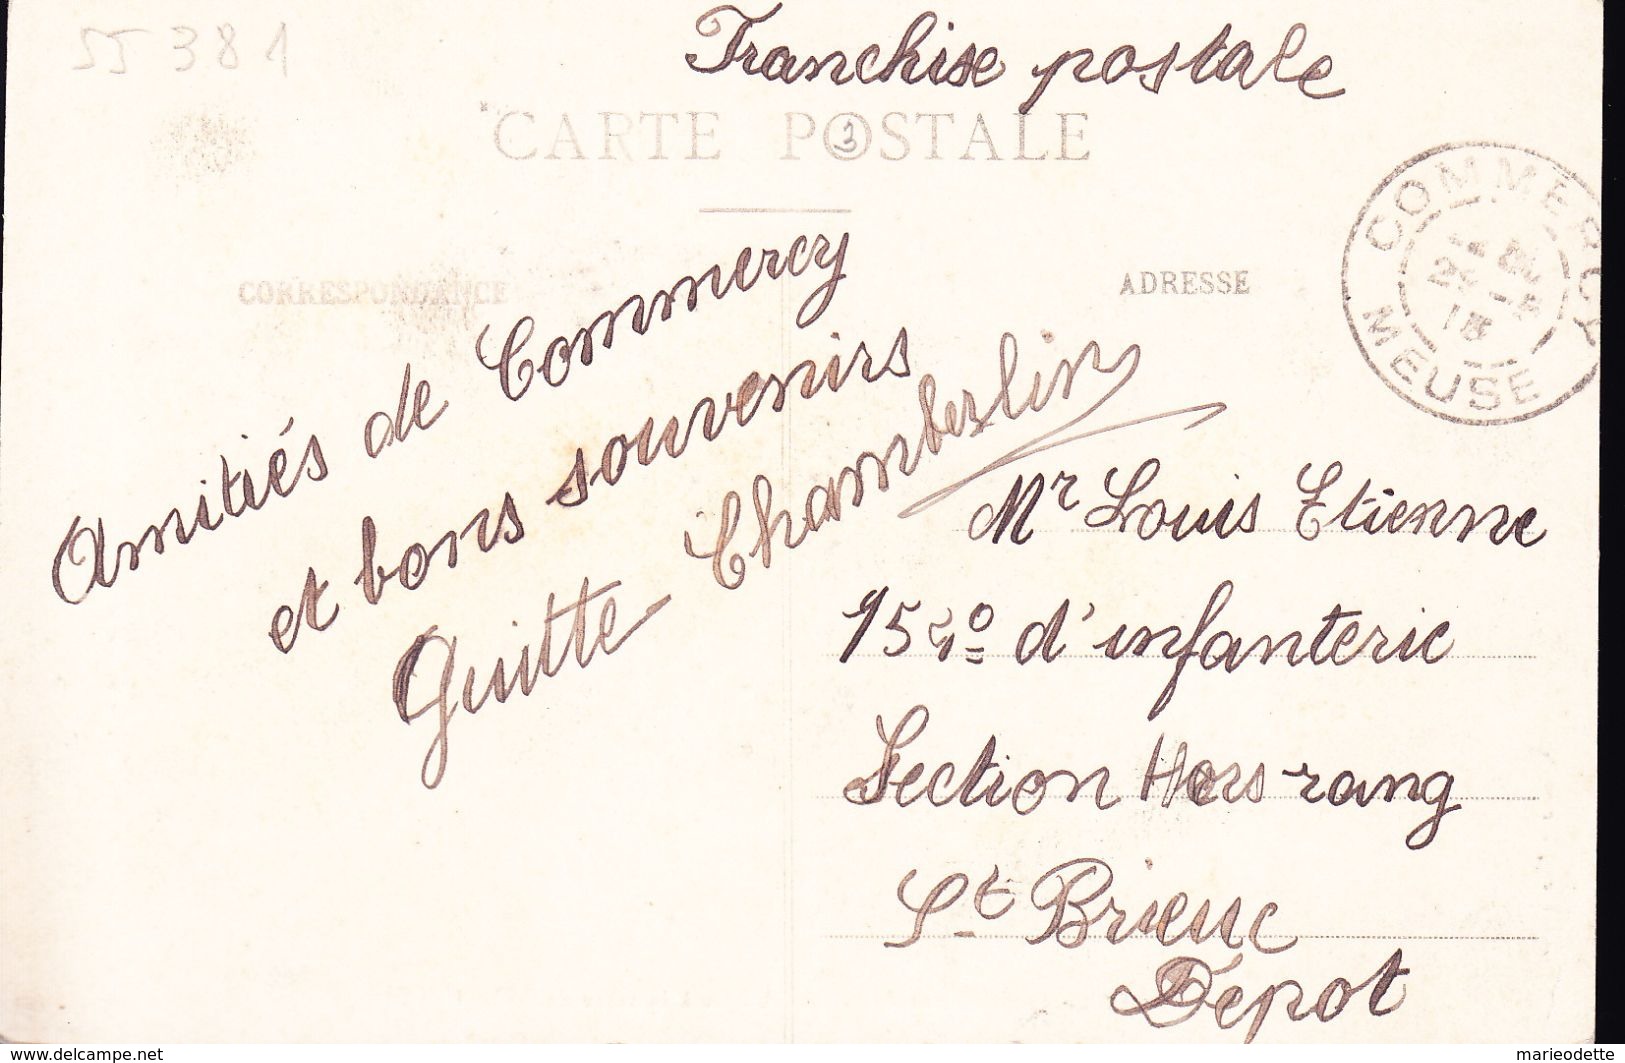 55381
Franchise postale
CARTE POSTALE
3
CORRESPONDANCE
ADRESSE
COMMERCY
MEUSE
Amitiés de Commercy
et bons souvenirs
Guitte Chamberlin
Mr Louis Etienne
d'infanterie
Section Hors-rang
St Brieuc
Dépot
www.delcampe.net
marieodette